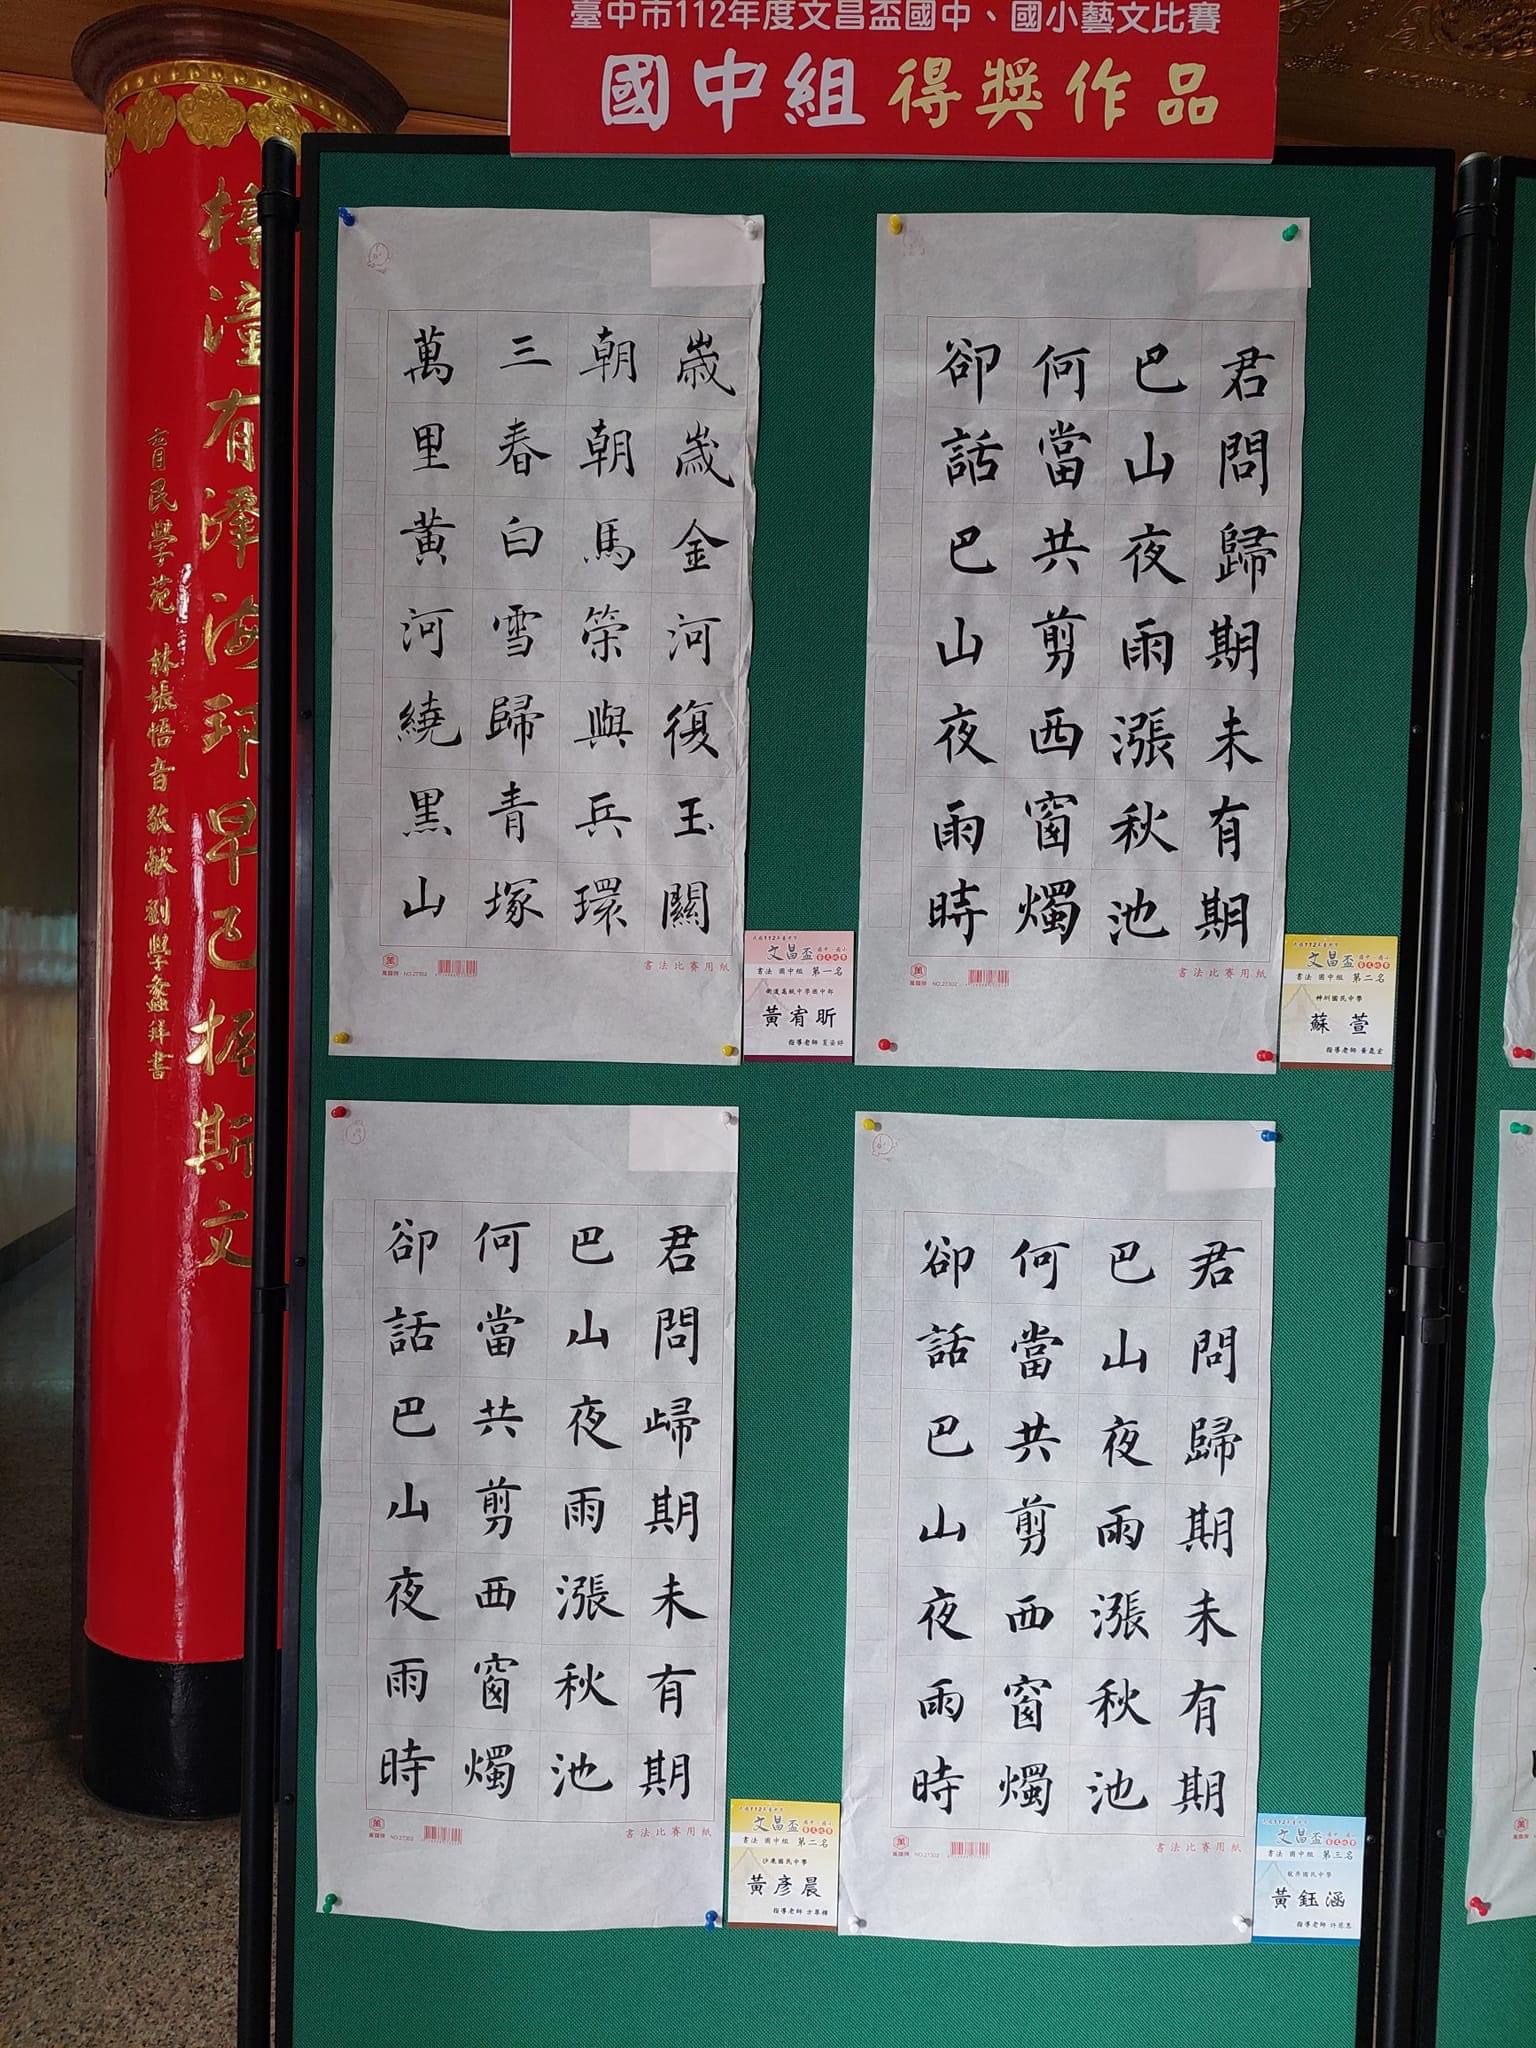 臺中市112年度文昌盃國中、國小藝文比賽
國中組 得獎作品
歲歲金河復玉關
朝朝馬策與兵環
三春白雪歸青塚
萬里黃河繞黑山
萬國牌 NO.27302
書法比賽用紙
文昌盃
書法 國中組 第一名
衛道高級中學國中部
黃宥昕
君問歸期未有期
巴山夜雨漲秋池
何當共剪西窗燭
卻話巴山夜雨時
萬國牌 NO.27302
書法比賽用紙
文昌盃
書法 國中組 第二名
神圳國民中學
蘇萱
君問歸期未有期
巴山夜雨漲秋池
何當共剪西窗燭
卻話巴山夜雨時
萬國牌 NO.27302
書法比賽用紙
文昌盃
書法 國中組 第二名
沙鹿國民中學
黃彥晨
君問歸期未有期
巴山夜雨漲秋池
何當共剪西窗燭
卻話巴山夜雨時
萬國牌 NO.27302
書法比賽用紙
文昌盃
書法 國中組 第三名
龍井國民中學
黃鈺涵
梓潼有澤海邦早已振斯文
育民學苑 林張悟音敬獻